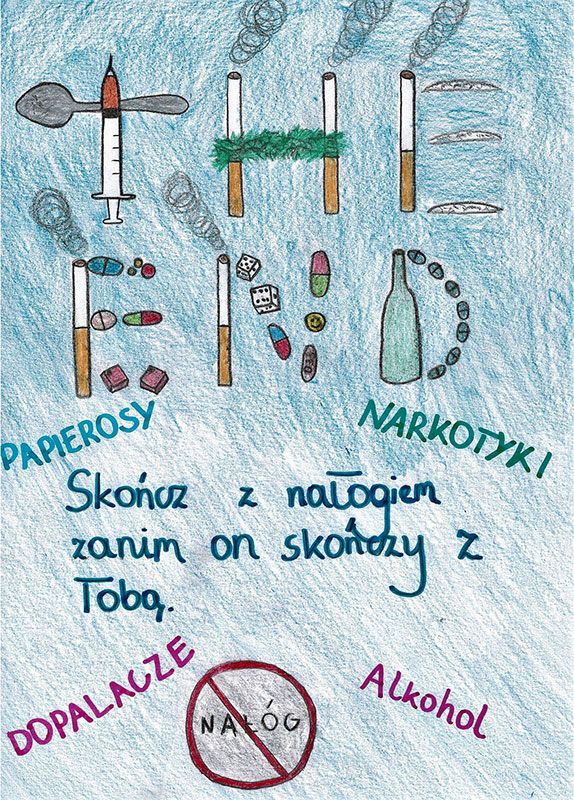 THE
END
PAPIEROSY
NARKOTYKI
Skończ z nałogiem
zanim on skończy z
Tobą.
DOPALACZE
Alkohol
NAŁÓG